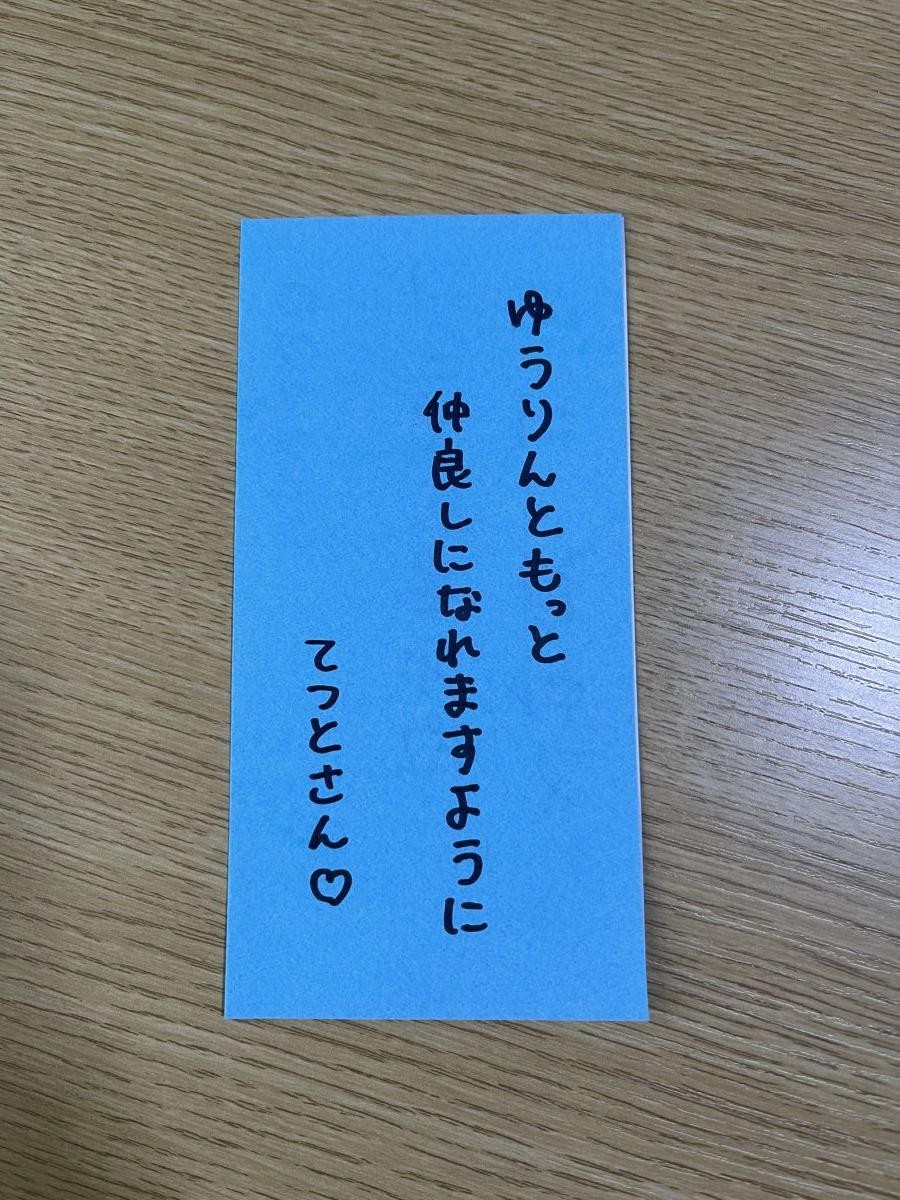 ゆうりんともっと
仲良しになれますように
てつとさん♡